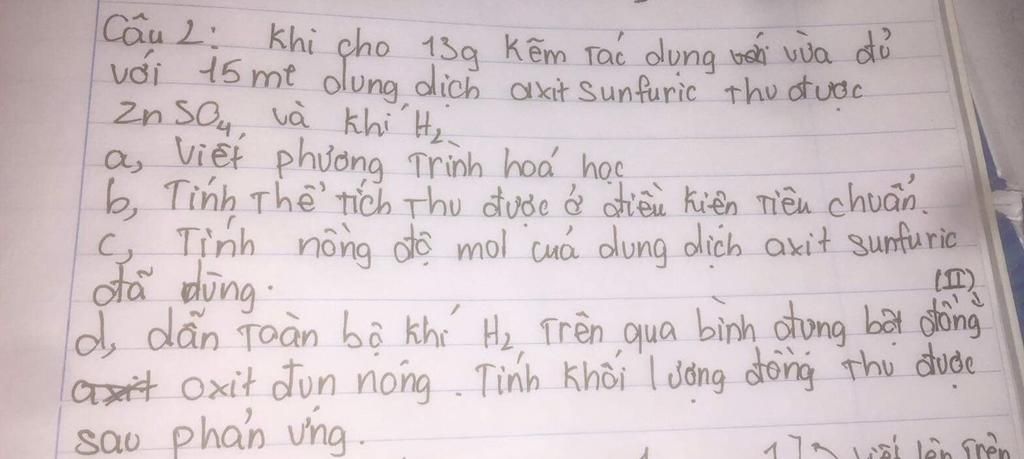 Câu 2: Khi cho 13g kẽm tác dụng với vừa đủ
với 15 ml dung dịch axit sunfuric thu được
ZnSO4 và khí H2
a, Viết phương trình hoá học
b, Tính thể tích thu được ở điều kiện tiêu chuẩn.
c, Tính nồng độ mol cuả dung dịch axit sunfuric
đã dùng.
(II)
d, dẫn toàn bộ khí H2 trên qua bình đựng bột đồng
axit oxit đun nóng. Tính khối lượng đồng thu được
sau phản ứng.
viết lên trên